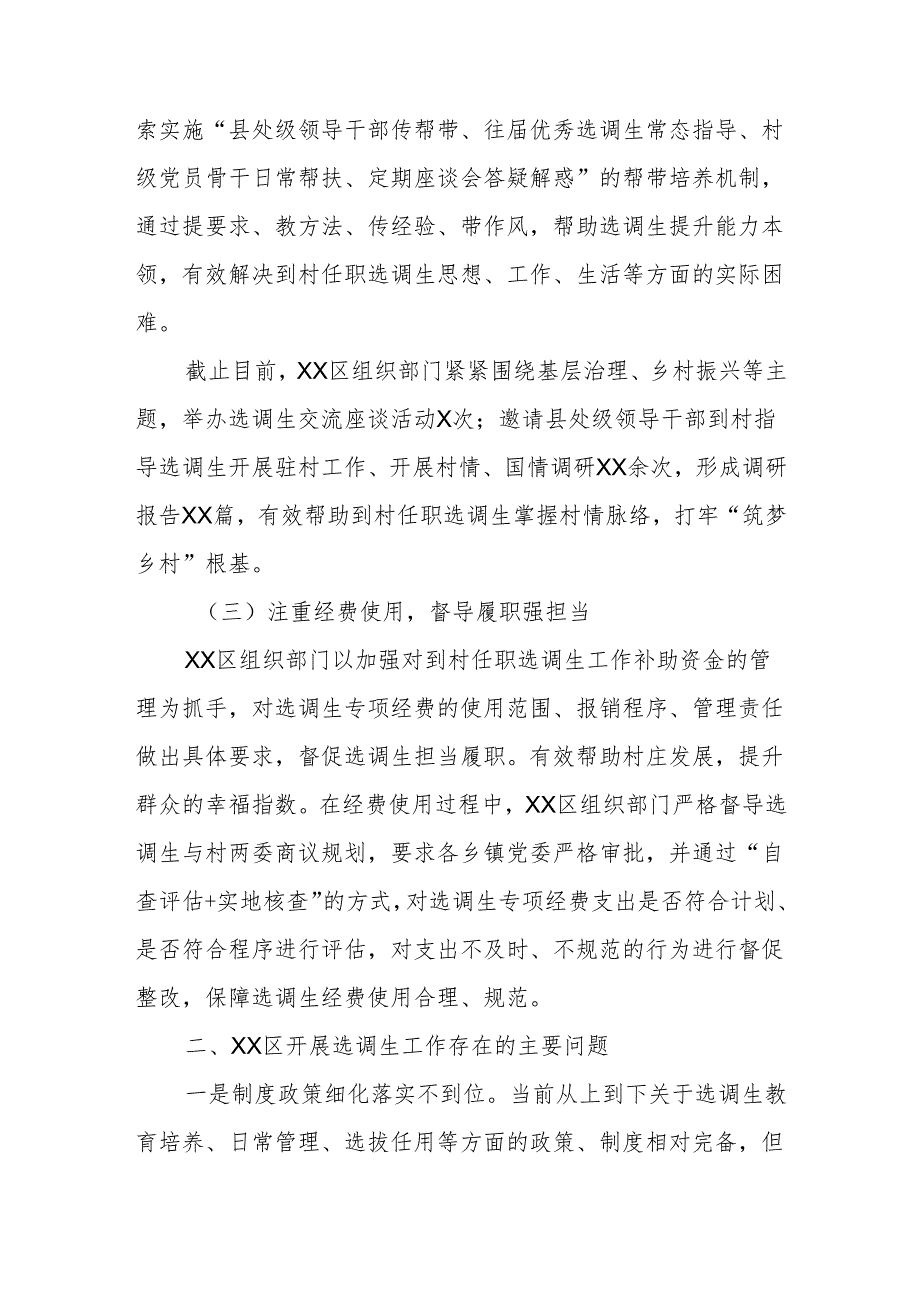 索实施“县处级领导干部传帮带、往届优秀选调生常态指导、村
级党员骨干日常帮扶、定期座谈会答疑解惑”的帮带培养机制，
通过提要求、教方法、传经验、带作风，帮助选调生提升能力本
领，有效解决到村任职选调生思想、工作、生活等方面的实际困
难。
截止目前，XX区组织部门紧紧围绕基层治理、乡村振兴等主
题，举办选调生交流座谈活动X次；邀请县处级领导干部到村指
导选调生开展驻村工作、开展村情、国情调研XX余次，形成调研
报告XX篇，有效帮助到村任职选调生掌握村情脉络，打牢“筑梦
乡村”根基。
（三）注重经费使用，督导履职强担当
XX区组织部门以加强对到村任职选调生工作补助资金的管
理为抓手，对选调生专项经费的使用范围、报销程序、管理责任
做出具体要求，督促选调生担当履职。有效帮助村庄发展，提升
群众的幸福指数。在经费使用过程中，XX区组织部门严格督导选
调生与村两委商议规划，要求各乡镇党委严格审批，并通过“自
查评估+实地核查”的方式，对选调生专项经费支出是否符合计划、
是否符合程序进行评估，对支出不及时、不规范的行为进行督促
整改，保障选调生经费使用合理、规范。
二、XX区开展选调生工作存在的主要问题
一是制度政策细化落实不到位。当前从上到下关于选调生教
育培养、日常管理、选拔任用等方面的政策、制度相对完备，但